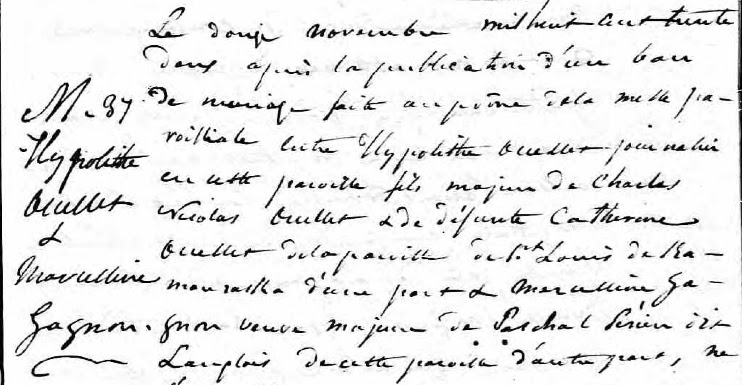 M. 37
Hypolithe
Ouellet
&
Marcelline
Gagnon.
Le douze novembre mil huit cent trente
deux après la publication d'un ban
de mariage faite au prône de la messe pa-
roissiale entre Hypolithe Ouellet journalier
en cette paroisse fils majeur de Charles
Nicolas Ouellet & de défunte Catherine
Ouellet de la paroisse de St. Louis de Ka-
mouraska d'une part & Marcelline Ga-
gnon veuve majeure de Paschal Périen dit
Langlois de cette paroisse d'autre part, ne